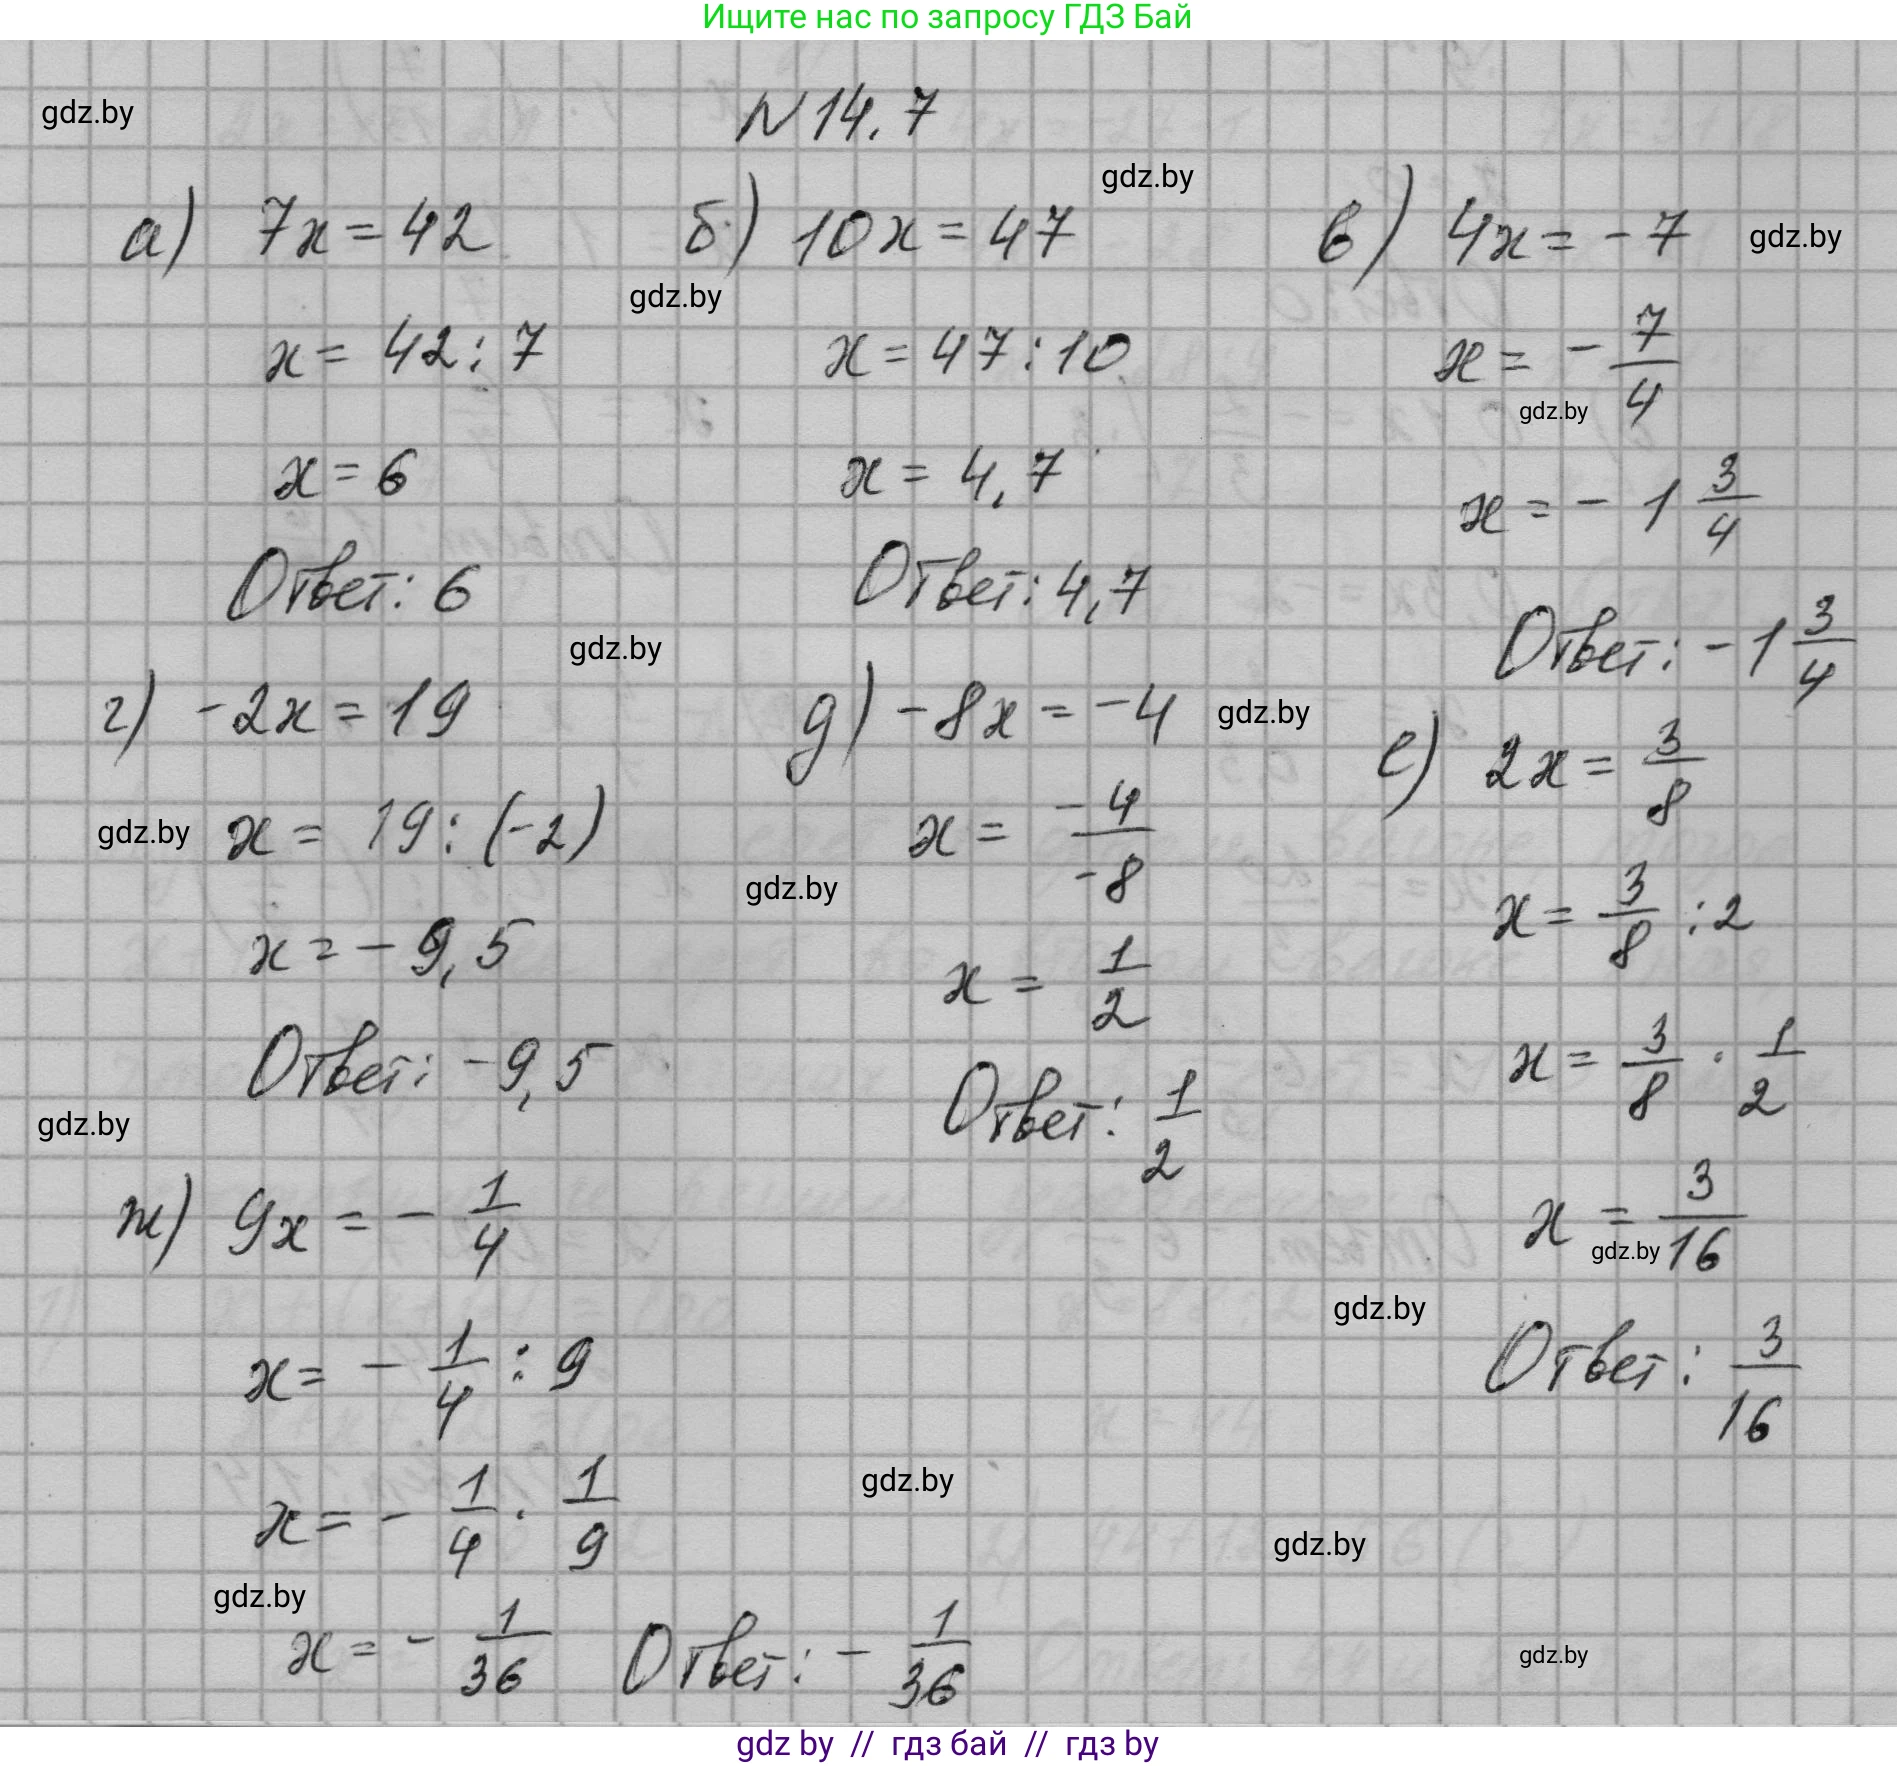 Ищите нас по запросу ГДЗ Бай
gdz.by
N 14.7
gdz.by
а) 7x = 42
x = 42 : 7
x = 6
Ответ: 6
б) 10x = 47
gdz.by
x = 47 : 10
x = 4,7
Ответ: 4,7
в) 4x = -7
gdz.by
x = - 7/4
gdz.by
x = - 1 3/4
Ответ: - 1 3/4
gdz.by
г) -2x = 19
gdz.by
x = 19 : (-2)
x = - 9,5
Ответ: -9,5
д) -8x = -4
gdz.by
x = -4/-8
gdz.by
x = 1/2
Ответ: 1/2
е) 2x = 3/8
x = 3/8 : 2
x = 3/8 · 1/2
x = 3/16
gdz.by
gdz.by
Ответ: 3/16
gdz.by
ж) 9x = - 1/4
x = - 1/4 : 9
x = - 1/4 · 1/9
gdz.by
gdz.by
gdz.by
x = - 1/36 Ответ: - 1/36
gdz.by
gdz by // гдз бай // гдз by